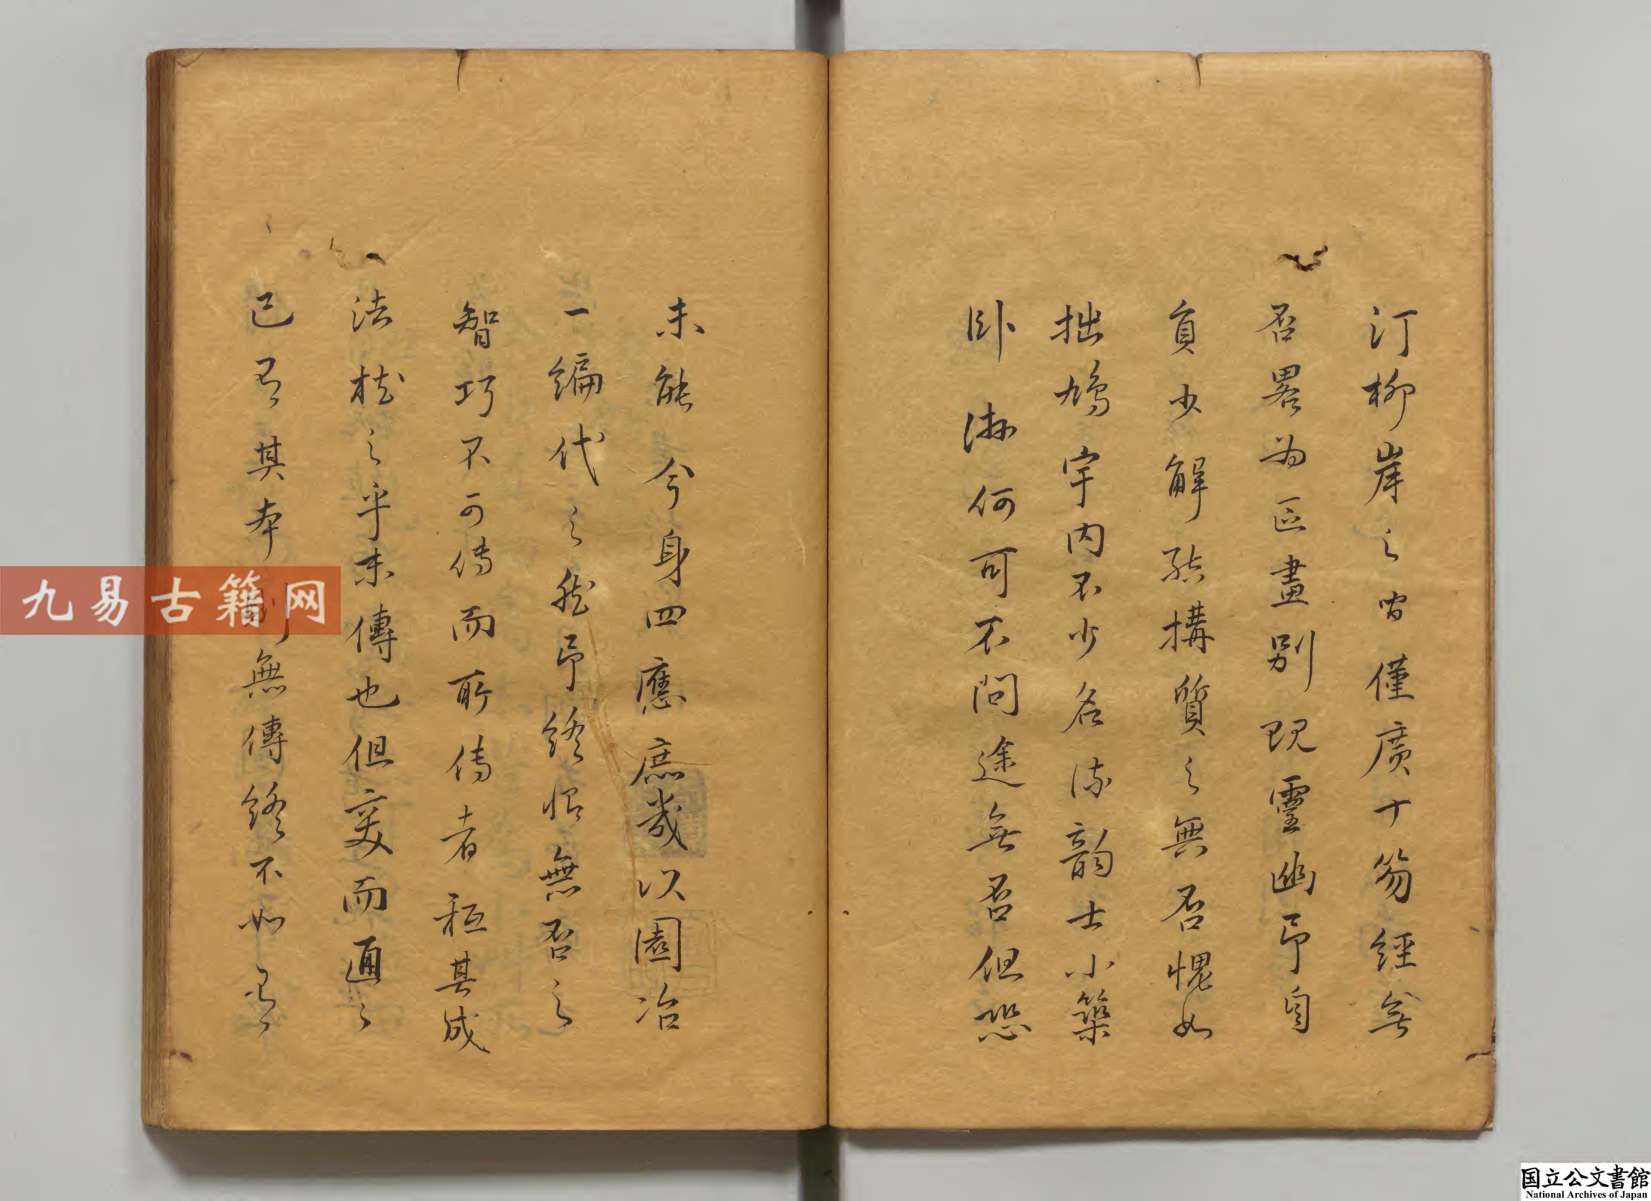 汀柳岸之間僅廣十笏經無
否畧為區畫別現靈幽予自
負少解結構質之無否愧如
拙鳩宇內不少名流韻士小築
臥游何可不問途無否但恐
未能分身四應庶幾以園冶
一編代之然予終恨無否之
智巧不可傳而所傳者秪其成
法猶之乎未傳也但變而通之
已有其本則無傳終不如有
九易古籍网
国立公文書館
National Archives of Japan